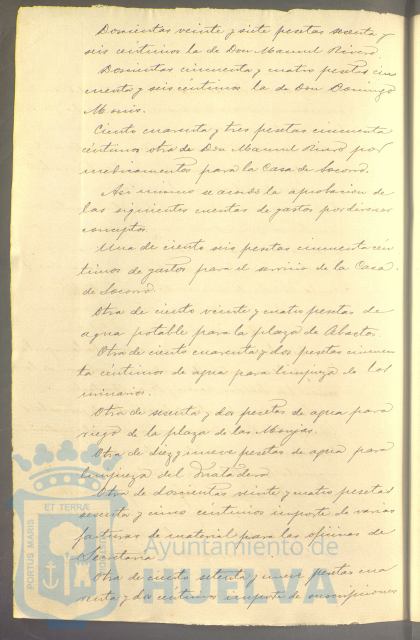 Doscientas veinte y siete pesetas sesenta y
seis centimos la de Don Manuel Rivero
Doscientas cincuenta y cuatro pesetas cin
cuenta y seis centimos la de Don Domingo
Monis.
Ciento cuarenta y tres pesetas cincuenta
centimos otra de Don Manuel Rivero por
medicamentos para la Casa de Socorro.
Asi mismo se acordó la aprobacion de
las siguientes cuentas de gastos por diversos
conceptos.
Una de ciento seis pesetas cincuenta cen
timos de gastos para el servicio de la Casa
de Socorro.
Otra de ciento veinte y cuatro pesetas de
agua potable para la plaza de Abastos.
Otra de ciento cuarenta y dos pesetas cincuen
ta centimos de agua para limpieza de los
urinarios.
Otra de sesenta y dos pesetas de agua para
riego de la plaza de las Monjas.
Otra de diez y nueve pesetas de agua para
limpieza del Matadero
Otra de doscientas veinte y cuatro pesetas
sesenta y cinco centimos importe de varias
facturas de material para las oficinas de
Secretaria
Otra de ciento setenta y nueve pesetas cua
renta y dos centimos importe de suscripciones
PORTUS MARIS
ET TERRÆ
Ayuntamiento de
HUELVA